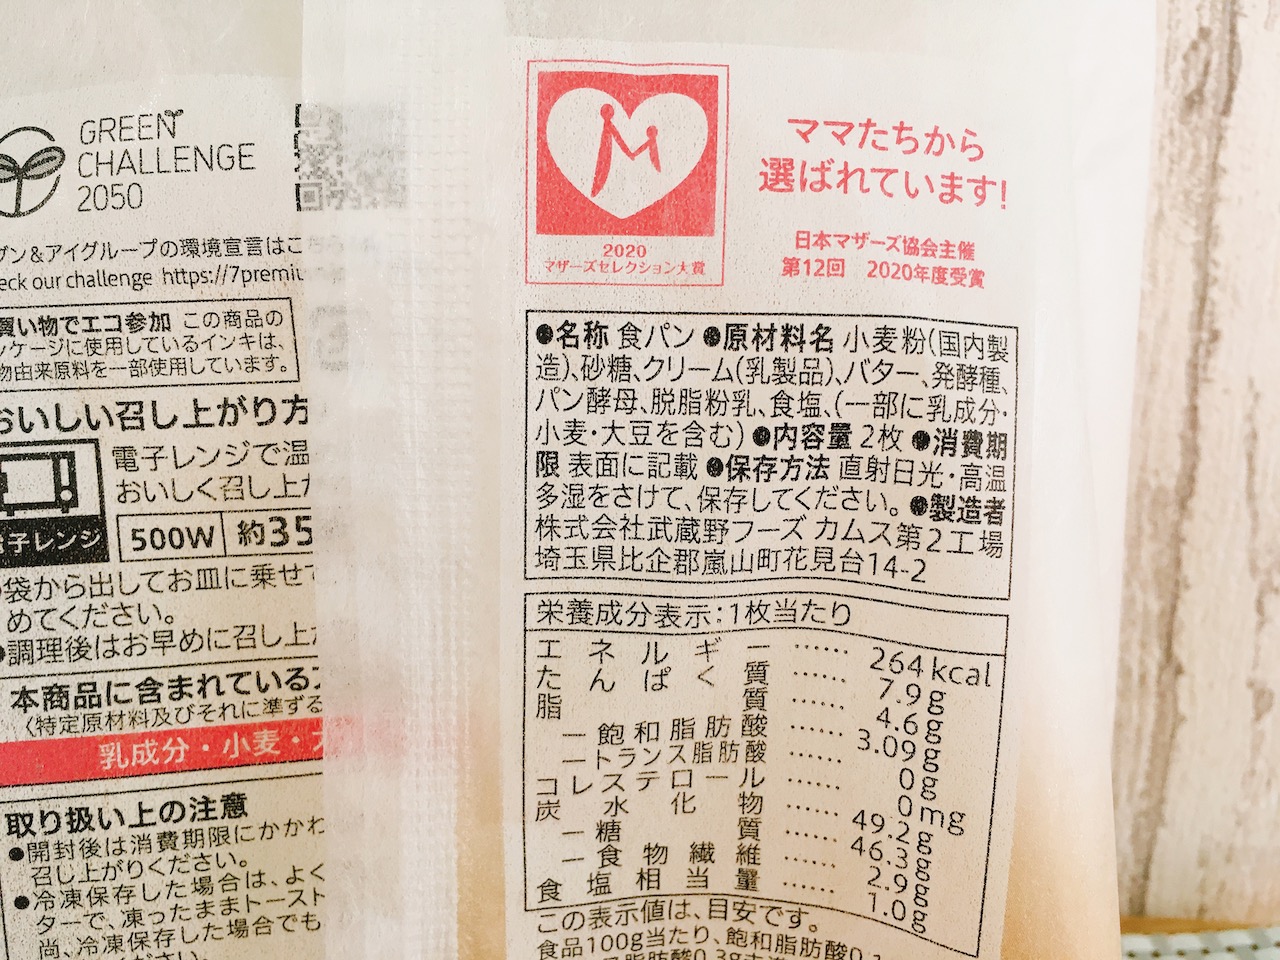 GREEN
CHALLENGE
2050
ブン&アイグループの環境宣言はこちら
eck our challenge https://7premiu
買い物でエコ参加 この商品の
ッケージに使用しているインキは、
物由来原料を一部使用しています。
おいしい召し上がり方
電子レンジで温
おいしく召し上が
子レンジ
500W 約35
袋から出してお皿に乗せて
めてください。
●調理後はお早めに召し上が
本商品に含まれている
〈特定原材料及びそれに準ずる
乳成分・小麦・大
取り扱い上の注意
●開封後は消費期限にかかわ
召し上がりください。
●冷凍保存した場合は、よく
ターで、凍ったままトースト
尚、冷凍保存した場合でも
ください。
2020
マザーズセレクション大賞
ママたちから
選ばれています!
日本マザーズ協会主催
第12回 2020年度受賞
●名称 食パン ●原材料名 小麦粉(国内製
造)、砂糖、クリーム(乳製品)、バター、発酵種、
パン酵母、脱脂粉乳、食塩、(一部に乳成分・
小麦・大豆を含む) ●内容量 2枚 ●消費期
限 表面に記載 ●保存方法 直射日光・高温
多湿をさけて、保存してください。●製造者
株式会社武蔵野フーズ カムス第2工場
埼玉県比企郡嵐山町花見台14-2
栄養成分表示:1枚当たり
エネルギー …… 264kcal
たんぱく質 …… 7.9g
脂質 …… 4.6g
―飽和脂肪酸 …… 3.09g
―トランス脂肪酸 …… 0g
コレステロール …… 0mg
炭水化物 …… 49.2g
―糖質 …… 46.3g
―食物繊維 …… 2.9g
食塩相当量 …… 1.0g
この表示値は、目安です。
食品100g当たり、飽和脂肪酸0.1